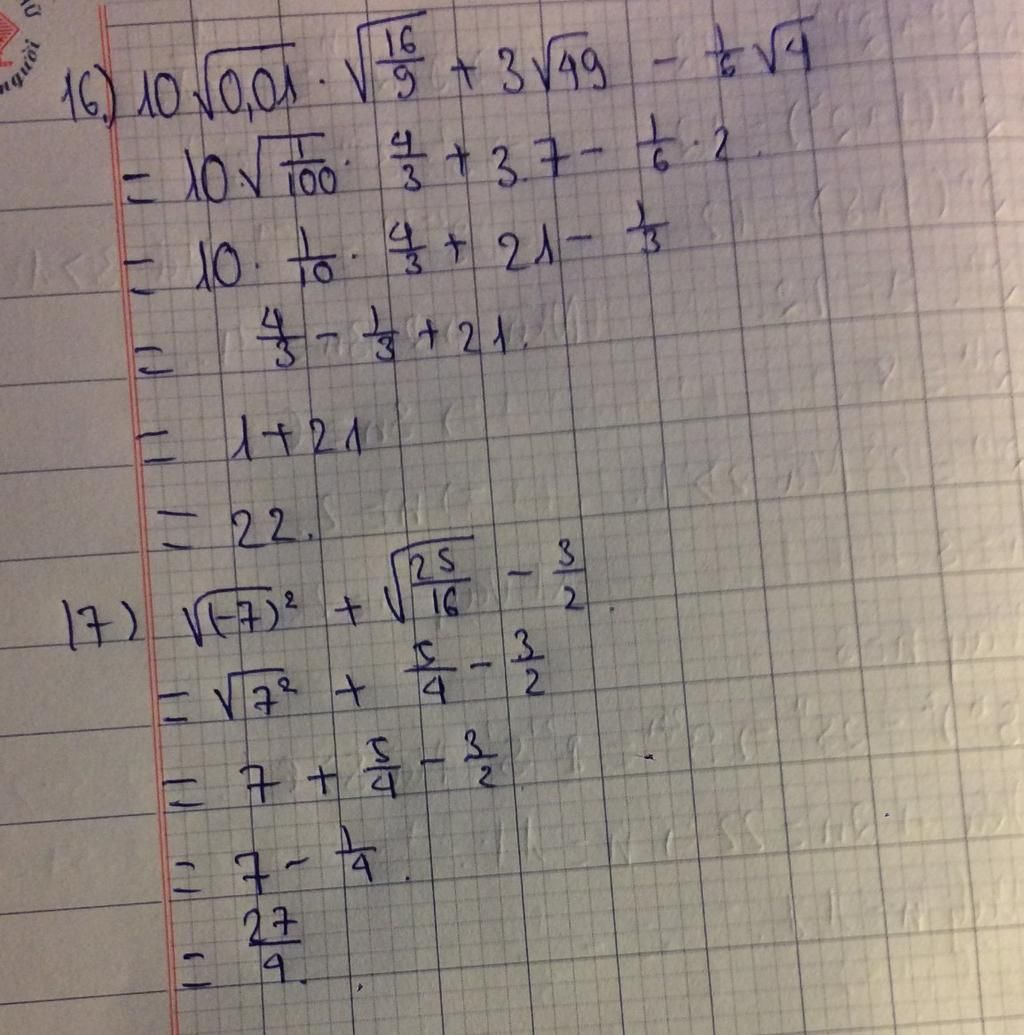 người
16) 10√0,01 · √(16/9) + 3√49 - 1/6 √4
= 10·√(1/100) · 4/3 + 3.7 - 1/6 · 2
= 10 · 1/10 · 4/3 + 21 - 1/3
= 4/3 - 1/3 + 21.
= 1 + 21
= 22.
17) √(-7)² + √(25/16) - 3/2.
= √7² + 5/4 - 3/2
= 7 + 5/4 - 3/2
= 7 - 1/4.
= 27/4.